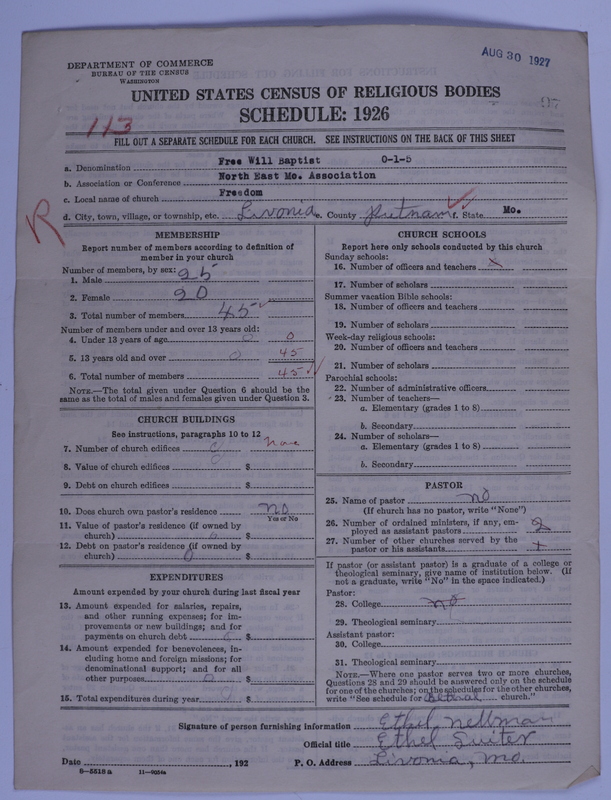 AUG 30 1927
DEPARTMENT OF COMMERCE
BUREAU OF THE CENSUS
WASHINGTON
UNITED STATES CENSUS OF RELIGIOUS BODIES
SCHEDULE: 1926
113
FILL OUT A SEPARATE SCHEDULE FOR EACH CHURCH. SEE INSTRUCTIONS ON THE BACK OF THIS SHEET
a. Denomination Free Will Baptist 0-1-5
b. Association or Conference North East Mo. Association
c. Local name of church Freedom
d. City, town, village, or township, etc. Livonia e. County Putnam f. State Mo.
R
MEMBERSHIP
Report number of members according to definition of
member in your church
Number of members, by sex:
1. Male 25
2. Female 20
3. Total number of members 45
Number of members under and over 13 years old:
4. Under 13 years of age 0 0
5. 13 years old and over 0 45
6. Total number of members 45
NOTE.—The total given under Question 6 should be the
same as the total of males and females given under Question 3.
CHURCH BUILDINGS
See instructions, paragraphs 10 to 12
7. Number of church edifices 0 none
8. Value of church edifices 0 $
9. Debt on church edifices $
10. Does church own pastor's residence no
Yes or No
11. Value of pastor's residence (if owned by
church) 0 $
12. Debt on pastor's residence (if owned by
church) 0 $
EXPENDITURES
Amount expended by your church during last fiscal year
13. Amount expended for salaries, repairs,
and other running expenses; for im-
provements or new buildings; and for
payments on church debt 0 $
14. Amount expended for benevolences, in-
cluding home and foreign missions; for
denominational support; and for all
other purposes 0 $
15. Total expenditures during year 0 $
CHURCH SCHOOLS
Report here only schools conducted by this church
Sunday schools:
16. Number of officers and teachers x
17. Number of scholars
Summer vacation Bible schools:
18. Number of officers and teachers
19. Number of scholars
Week-day religious schools:
20. Number of officers and teachers
21. Number of scholars
Parochial schools:
22. Number of administrative officers
23. Number of teachers—
a. Elementary (grades 1 to 8)
b. Secondary
24. Number of scholars—
a. Elementary (grades 1 to 8)
b. Secondary
PASTOR
25. Name of pastor no
(If church has no pastor, write "None")
26. Number of ordained ministers, if any, em-
ployed as assistant pastors 2
27. Number of other churches served by the
pastor or his assistants
If pastor (or assistant pastor) is a graduate of a college or
theological seminary, give name of institution below. (If
not a graduate, write "No" in the space indicated.)
Pastor:
28. College no
29. Theological seminary
Assistant pastor:
30. College
31. Theological seminary
NOTE.—Where one pastor serves two or more churches,
Questions 28 and 29 should be answered only on the schedule
for one of the churches; on the schedules for the other churches,
write "See schedule for Bethel church."
Signature of person furnishing information Ethel
Official title Ethel Suiter
Date , 192 P. O. Address Livonia, Mo.
8—5518a 11—9054a